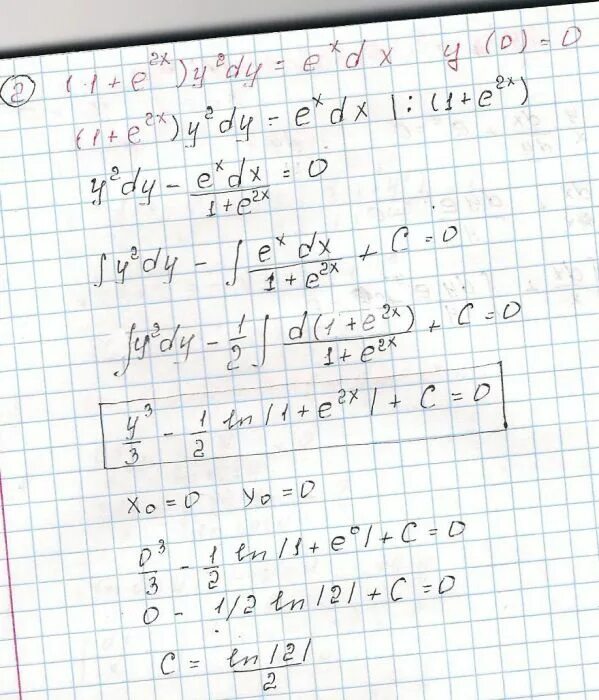 ② (1+e^{2x})y²dy = e^x dx   y(0)=0
(1+e^{2x})y²dy = e^x dx |:(1+e^{2x})
y²dy - \frac{e^x dx}{1+e^{2x}} = 0
∫y²dy - ∫\frac{e^x dx}{1+e^{2x}} + C = 0
∫y²dy - \frac{1}{2}∫\frac{d(1+e^{2x})}{1+e^{2x}} + C = 0
\frac{y³}{3} - \frac{1}{2} ln|1+e^{2x}| + C = 0
x₀=0   y₀=0
\frac{0³}{3} - \frac{1}{2} ln|1+e⁰| + C = 0
0 - 1/2 ln|2| + C = 0
C = \frac{ln|2|}{2}